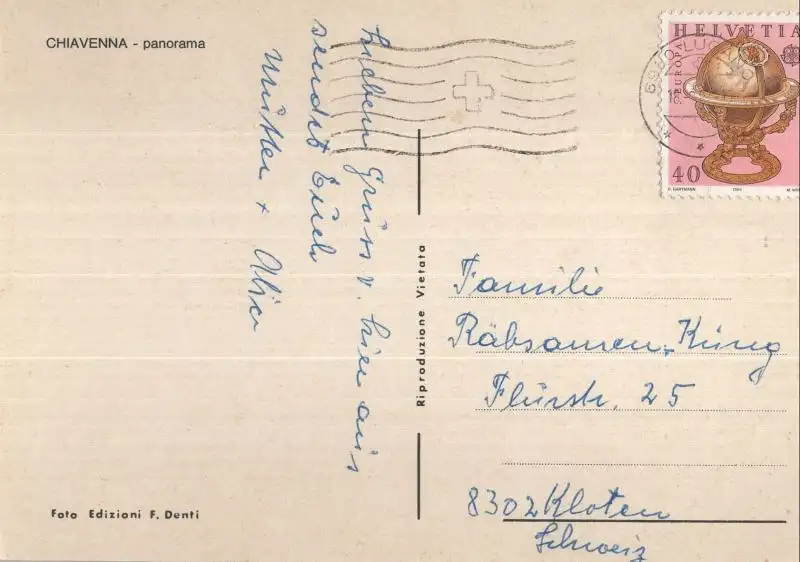 CHIAVENNA - panorama
Lieben Gruss v. hier aus
sendet Euch
Mutter + Alice
Foto Edizioni F. Denti
Riproduzione Vietata
HELVETIA
EUROPA
40
Familie
Räbsamen-Küng
Flurstr. 25
8302 Kloten
Schweiz